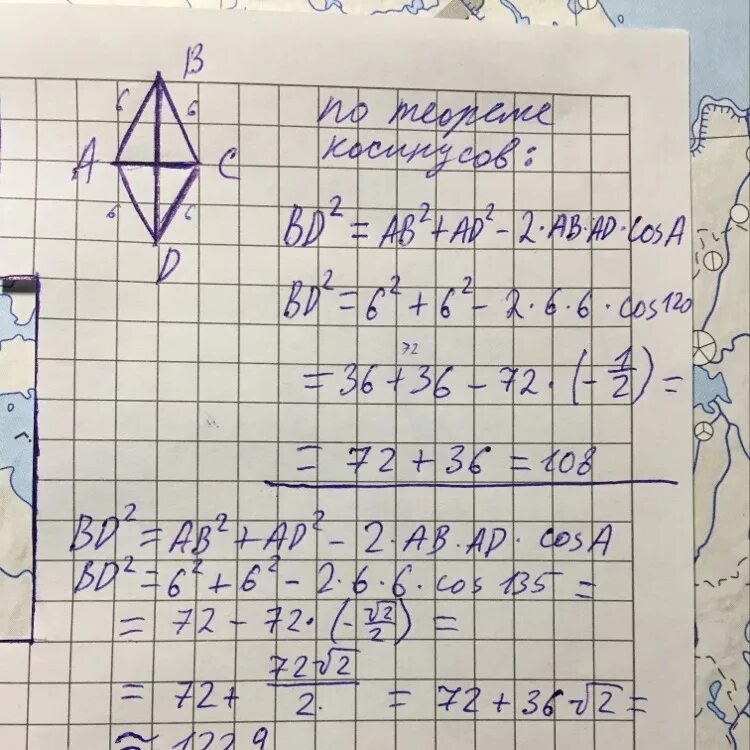 B
6 6
A C
6 6
D
по теореме
косинусов:
BD² = AB² + AD² - 2·AB·AD·cosA
BD² = 6² + 6² - 2·6·6·cos120
72
= 36 + 36 - 72·(-1/2) =
= 72 + 36 = 108
BD² = AB² + AD² - 2·AB·AD·cosA
BD² = 6² + 6² - 2·6·6·cos 135 =
= 72 - 72·(-√2/2) =
= 72 + 72√2/2 = 72 + 36√2 =
≈ 122,9